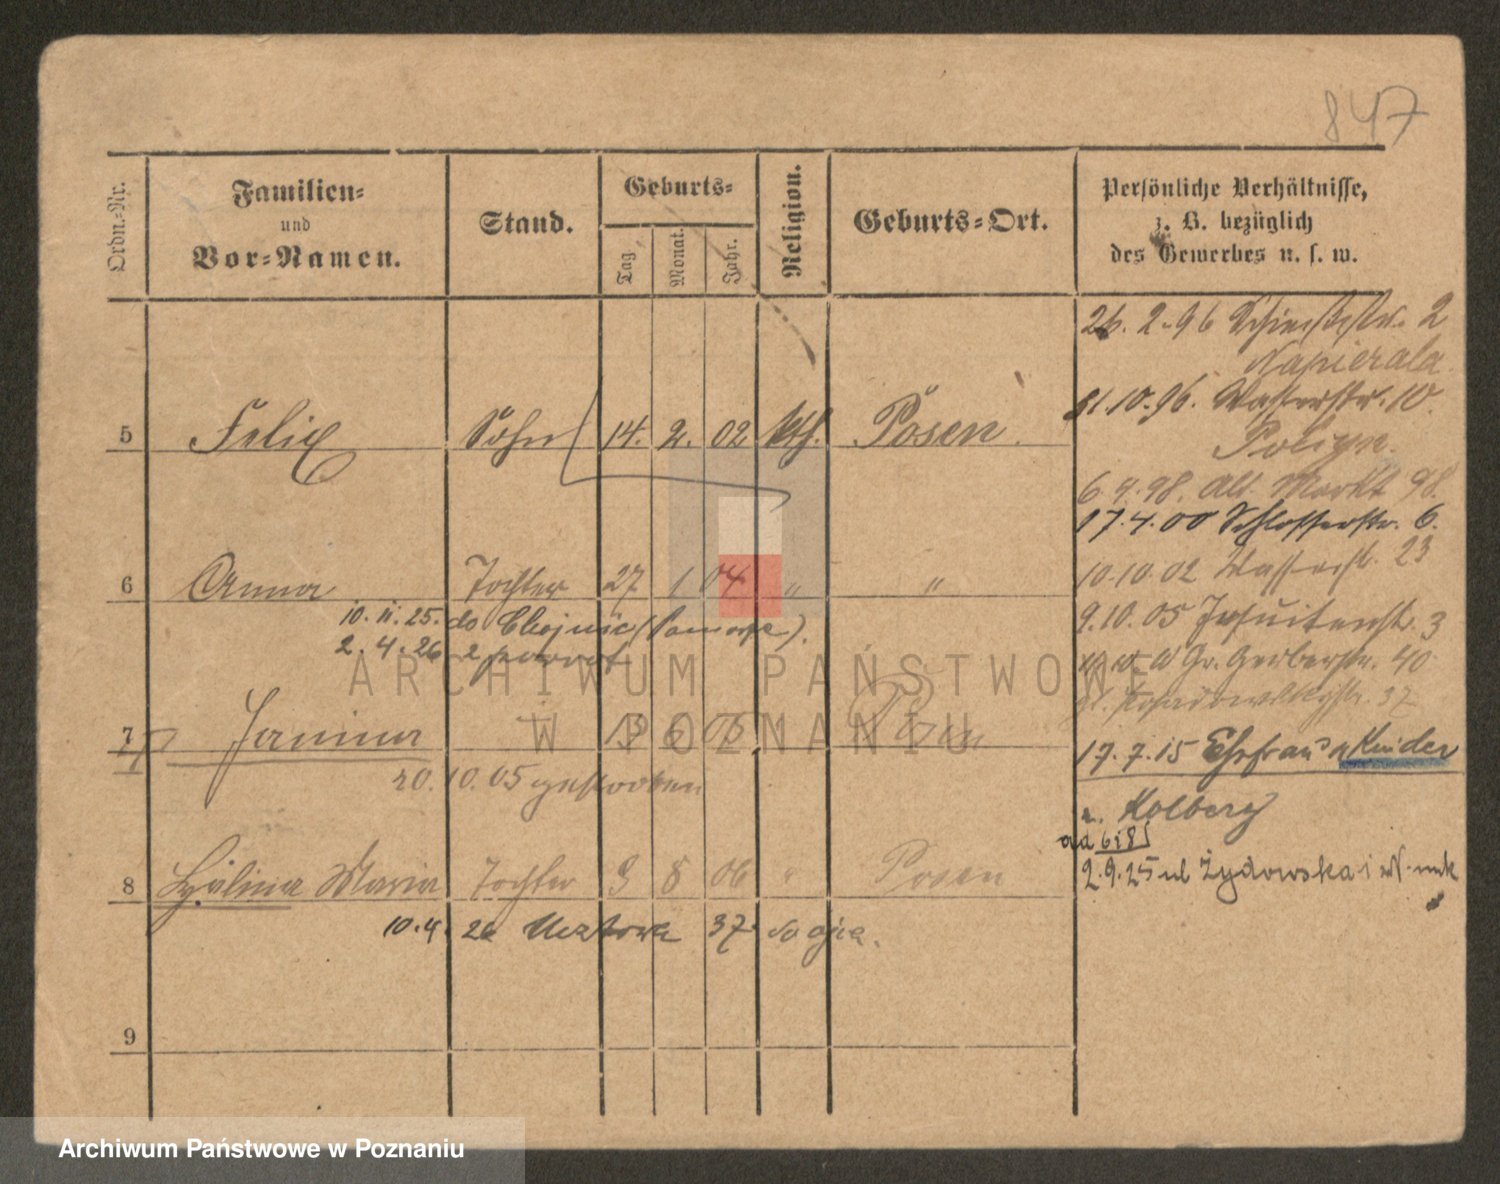 847
Ordn.-Nr.
Familien-
und
Vor-Namen.
Stand.
Geburts-
Tag
Monat.
Jahr.
Religion.
Geburts-Ort.
Persönliche Verhältnisse,
z. B. bezüglich
des Gewerbes u. s. w.
26. 2. 96 Schießstr. 2
Napierala
21.10.96. Wasserstr. 10.
5 Felix Sohn 14. 2. 02 kth. Posen.
6.4.98. Alt. Markt 98.
17.4.00 Schlosserstr. 6.
10.10.02 Wasserstr. 23
6 Anna Tochter 27 1 04 " "
9.10.05 Jesuitenstr. 3
10. 11. 25. do Chojnic
2. 4. 26 z powrot
Gr. Gerberstr. 40
37
7 Janina 6 05 Posen
17.7.15 Ehefrau u Kinder
20. 10. 05 gestorben
n. Kolberg
ad 6 i 8
8 Halina Maria Tochter 9 8 06 " Posen
2.9.25 ul Żydowska
10.4. 26 37 do ojca.
9
ARCHIWUM PAŃSTWOWE
W POZNANIU
Archiwum Państwowe w Poznaniu